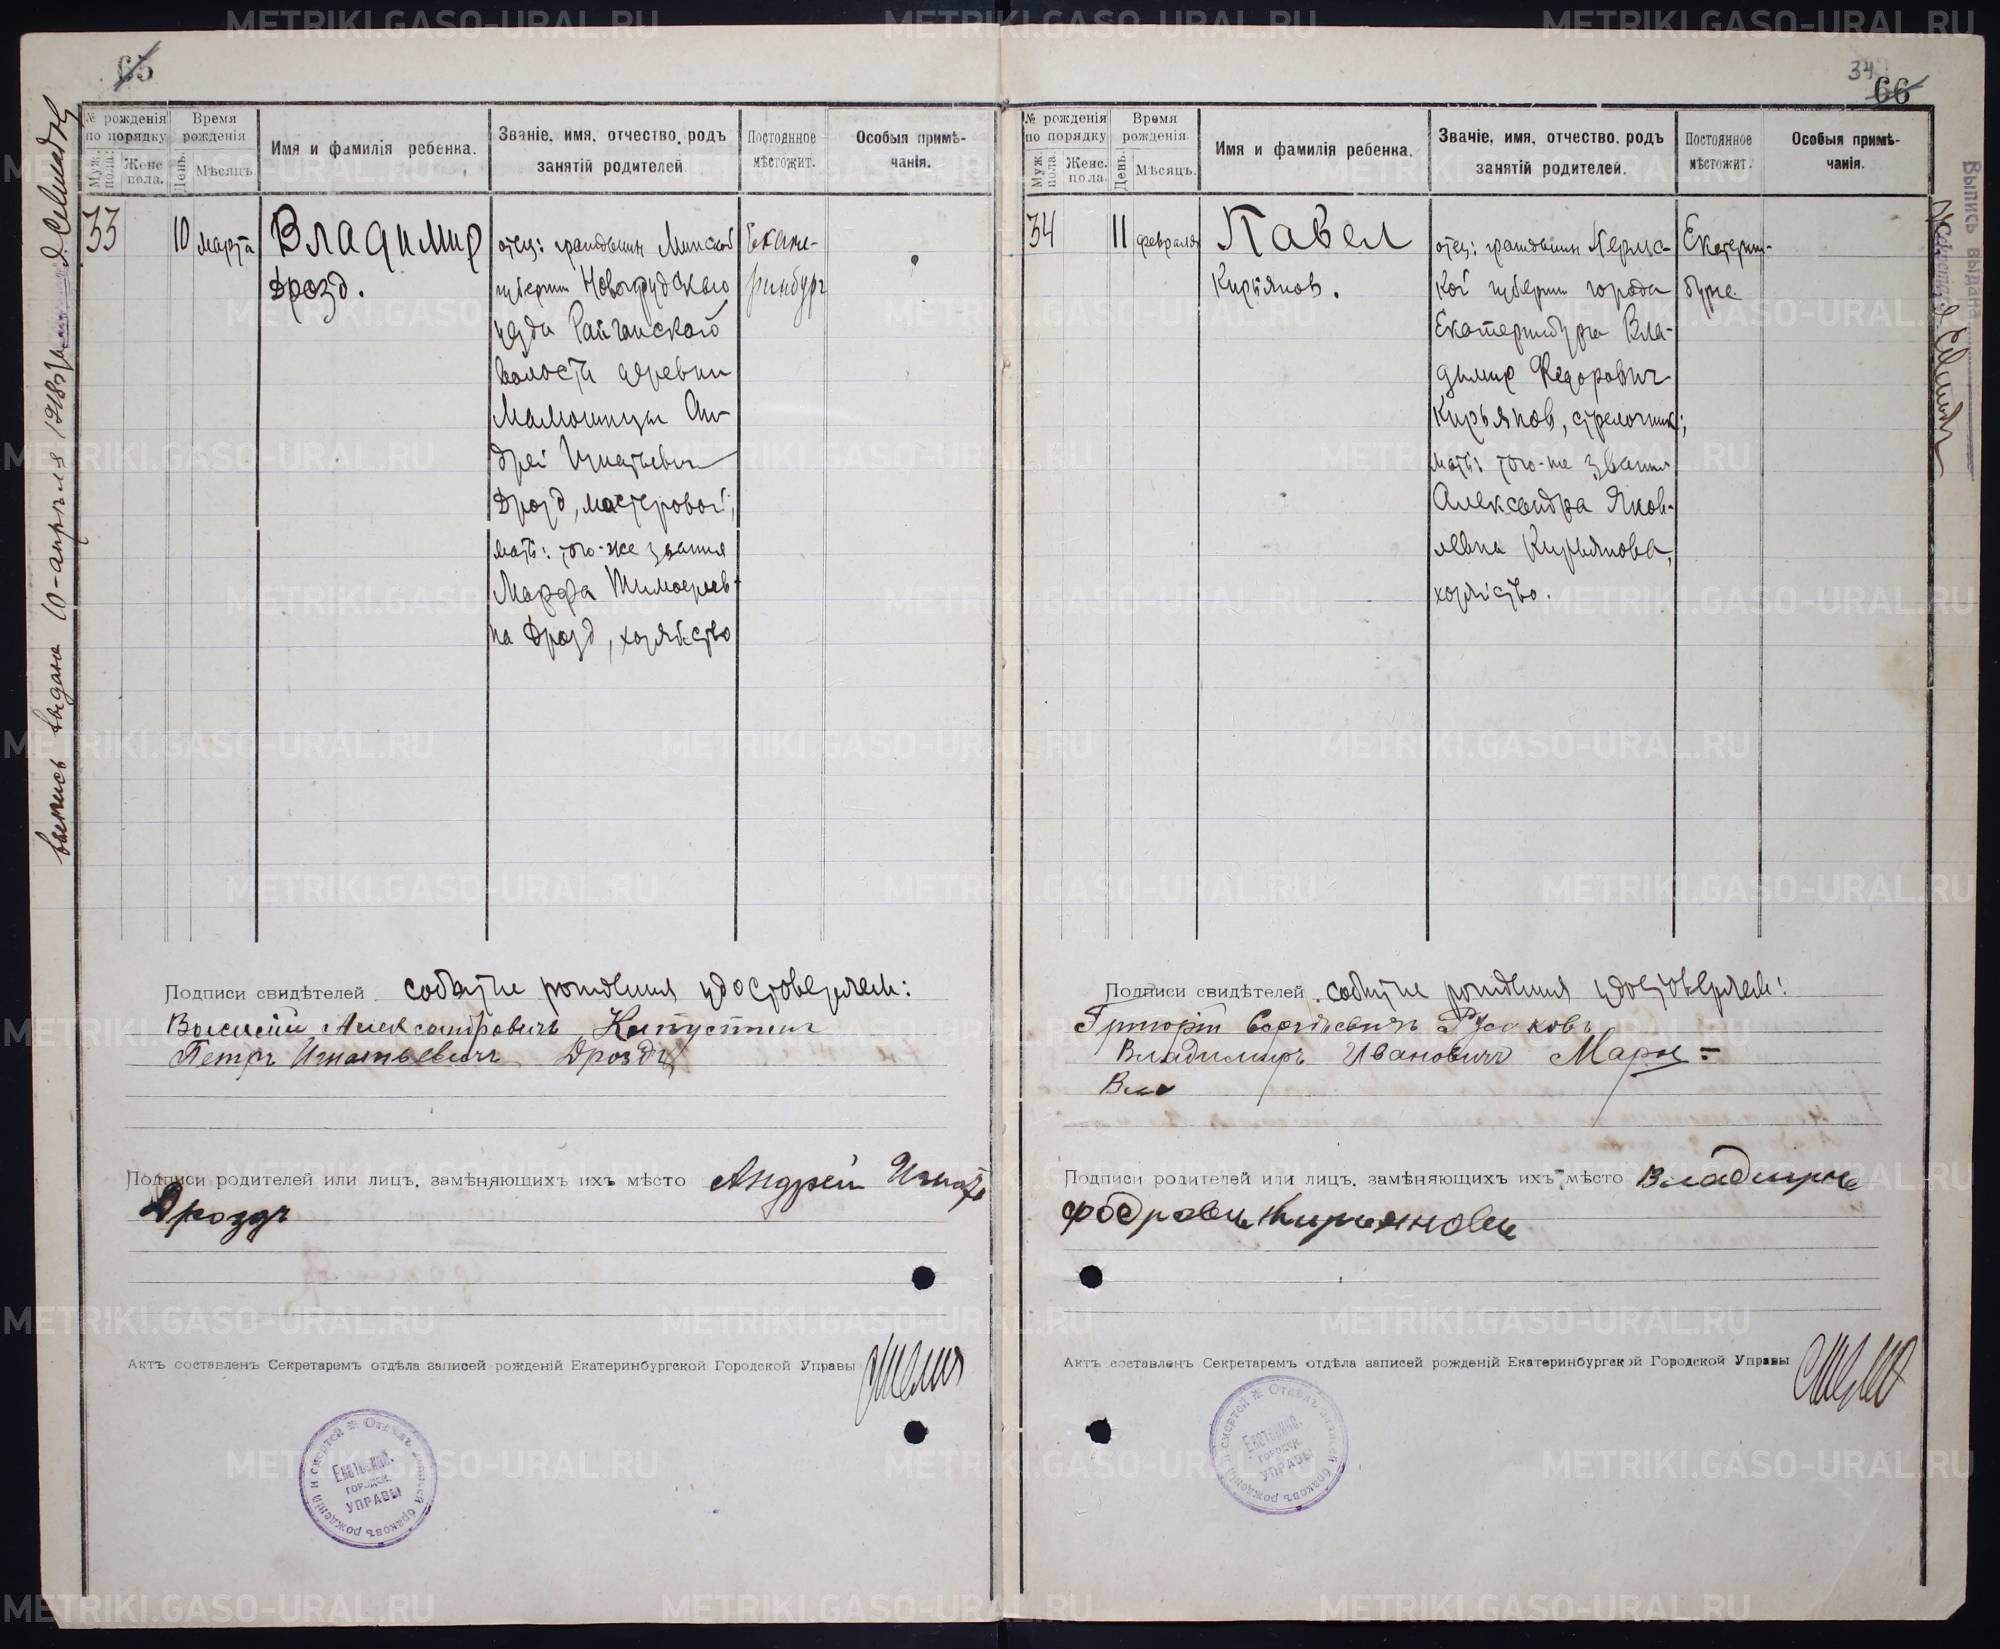 65
№ рожденія по порядку
Муж. пола.
Женс пола.
Время рожденія
День.
Мѣсяцъ.
Имя и фамилія ребенка.
Званіе, имя, отчество, родъ
занятій родителей.
Постоянное
мѣстожит.
Особыя примѣ-
чанія.
33
10
марта
Владимир
Дрозд.
отец: гражданин Минской
губернии Новогрудского
уезда Райчанского
волости деревни
Ан-
дрей Игнатьевич
Дрозд, мастеровой;
мать: того-же звания
Марфа Тимофеев-
на Дрозд, хозяйство
Екате-
ринбург
выпись выдана 10-апреля 1918
Подписи свидѣтелей событие рождения удостоверяем:
Василий Александровичъ Капустин
Петръ Игнатьевичъ Дроздъ
Подписи родителей или лицъ, замѣняющихъ ихъ мѣсто Андрей Игнат
Дроздъ
Актъ составленъ Секретаремъ отдѣла записей рожденій Екатеринбургской Городской Управы
Отдѣлъ записей браковъ рожденій и смертей
Екатеринб.
городск.
УПРАВЫ
34
66
№ рожденія по порядку
Муж. пола.
Женс. пола.
Время рожденія.
День.
Мѣсяцъ.
Имя и фамилія ребенка.
Званіе, имя, отчество, родъ
занятій родителей.
Постоянное
мѣстожит.
Особыя примѣ-
чанія.
34
11
февраля
Павел
Кирьянов.
отец: гражданин Пермс-
кой губернии города
Екатеринбурга Вла-
димир Федорович
Кирьянов, стрелочник;
мать: того-же звания
Александра Яков-
левна Кирьянова,
хозяйство.
Екатерин-
бурге
Выпись выдана
Подписи свидѣтелей событие рождения удостоверяем:
Григорій Сергѣевичъ Русаковъ
Владимиръ Ивановичъ
Подписи родителей или лицъ, замѣняющихъ ихъ мѣсто Владимиръ
Актъ составленъ Секретаремъ отдѣла записей рожденій Екатеринбургской Городской Управы
Отдѣлъ записей браковъ рожденій и смертей
Екатеринб.
городск.
УПРАВЫ
METRIKI.GASO-URAL.RU